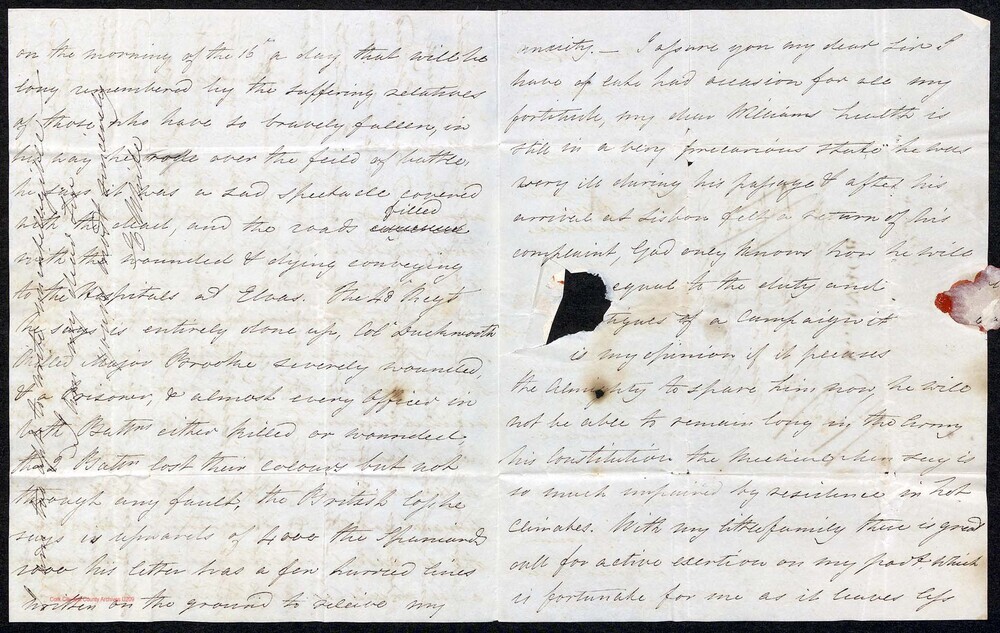 on the morning of the 16th a day that will be
long remembered by the suffering relatives
of those who have so bravely fallen, in
his way he rode over the feild of battle,
he says it was a sad spectacle covered
with the dead, and the roads filled
with the wounded & dying conveying
to the Hospitals at Elvas. The 48th Regt
he says is entirely done up, Col Duckworth
killed Major Brooke severely wounded,
& a Prisoner, & almost every officer in
both Battns either killed or wounded,
the 2d Battn lost their colours but not
through any fault, the British loss he
says is upwards of 4000 the Spaniards
his letter was a few hurried lines
written on the ground to relieve my
anxiety. — I assure you my dear Sir I
have of late had occasion for all my
fortitude, my dear Williams health is
still in a very precarious state he was
very ill during his passage & after his
arrival at Lisbon felt a return of his
complaint, God only knows how he will
equal to the duty and
tigues of a Campaign it
is my opinion if it pleases
the Almighty to spare him now, he will
not be able to remain long in the Army
his Constitution the Medical Men say is
so much impaired by residence in hot
climates. With my little family there is great
call for active exertion on my part which
is fortunate for me as it leaves less
Cork City and County Archives U209